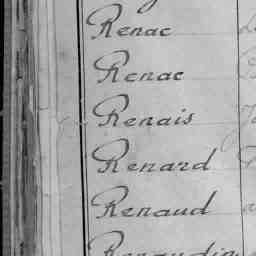 Renac
Renac
Renais
Renard
Renaud
Renaudin